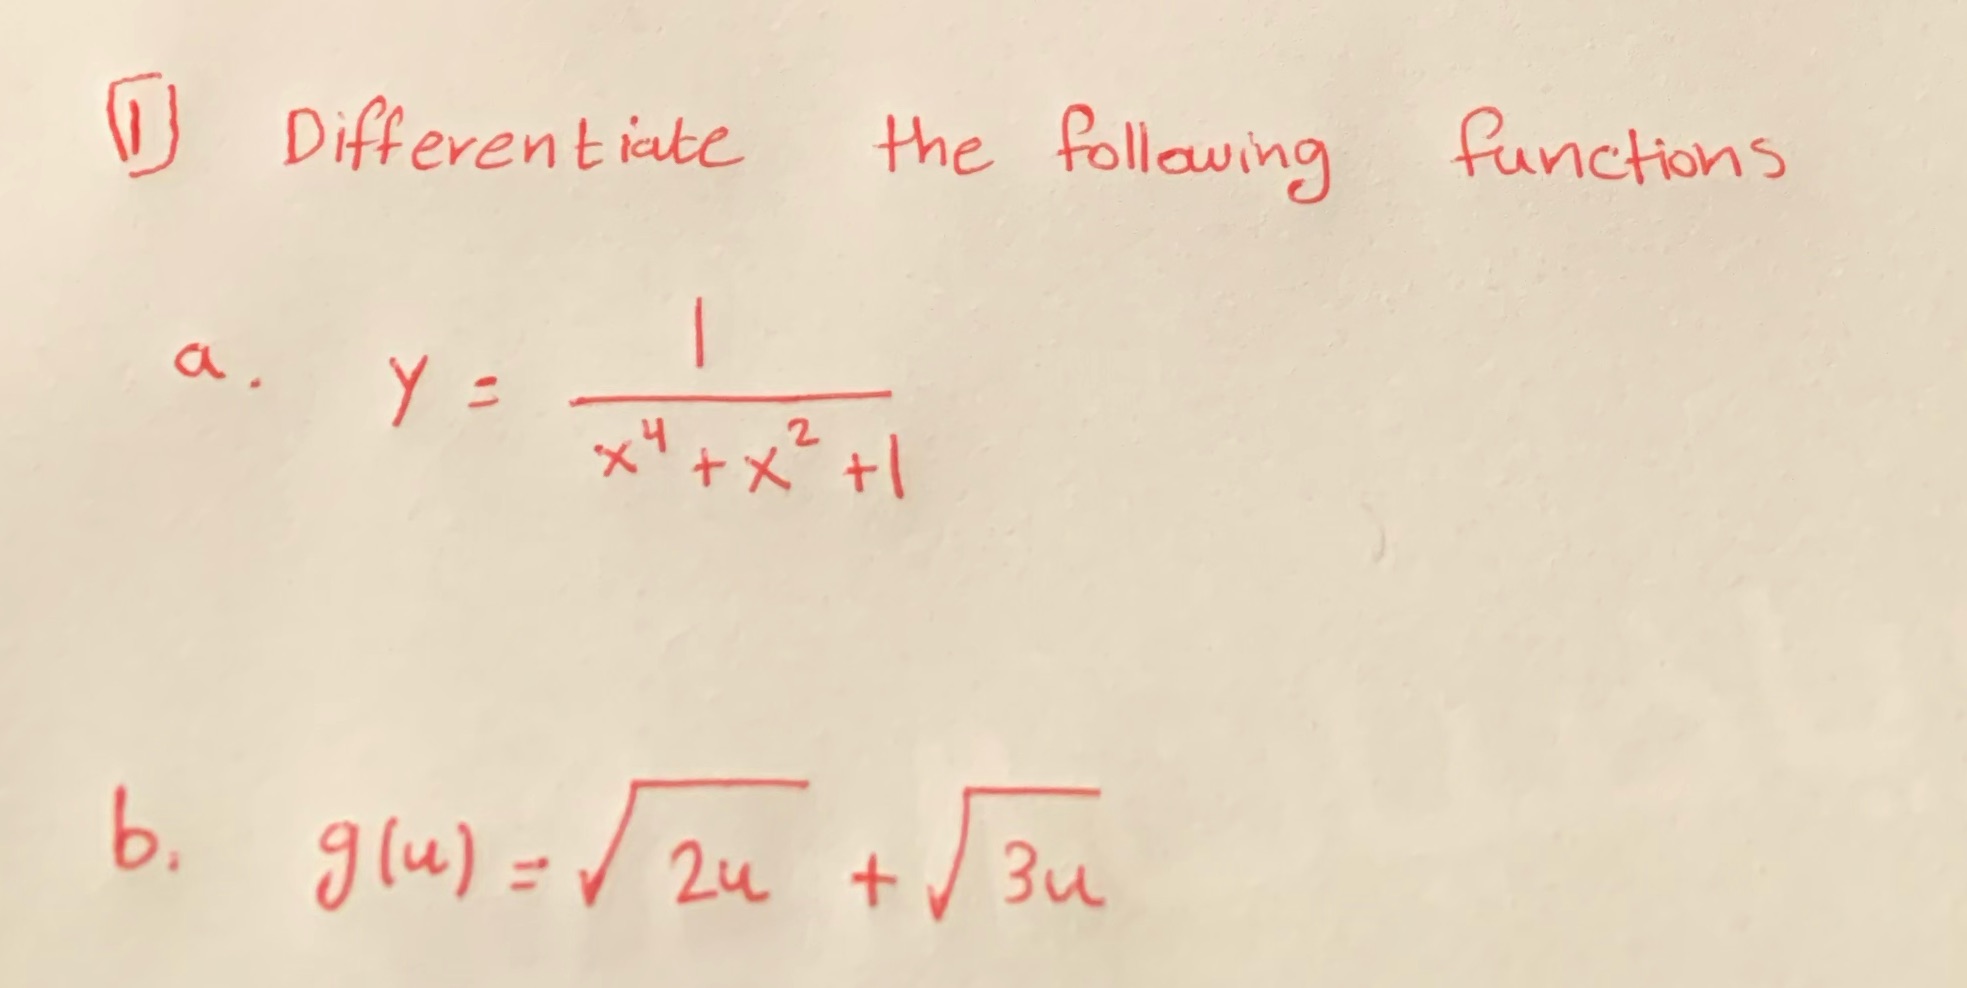 1 Differentiate the following functions
a. y = 1/(x⁴ + x² + 1)
b. g(u) = √(2u) + √(3u)